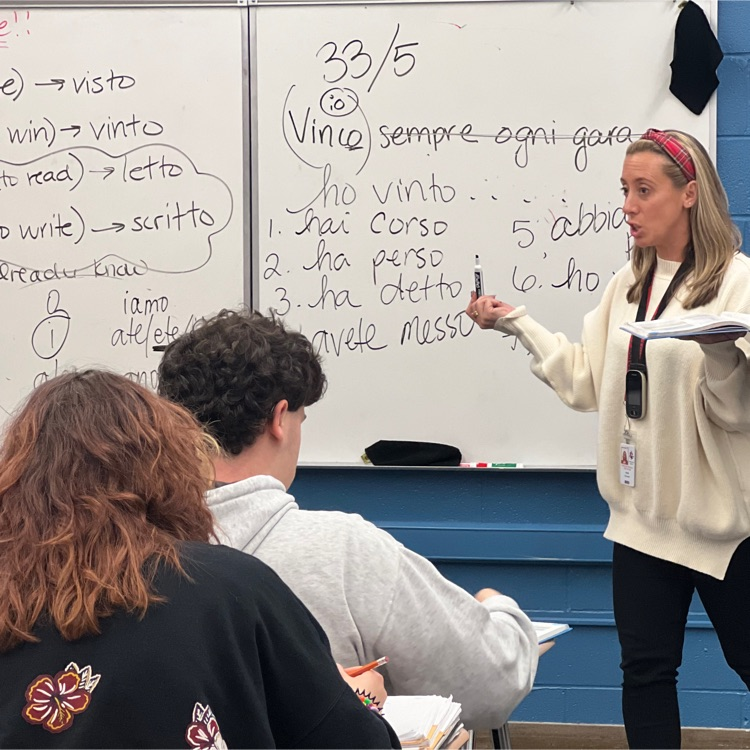 e!!
e) → visto
win) → vinto
to read) → letto
o write) → scritto
already know
o iamo
i ate/ete/
33/5
io
(Vinco) sempre ogni gara
ho vinto . . . .
1. hai corso
2. ha perso
3. ha detto
avete messo
5. abbia
6. ho